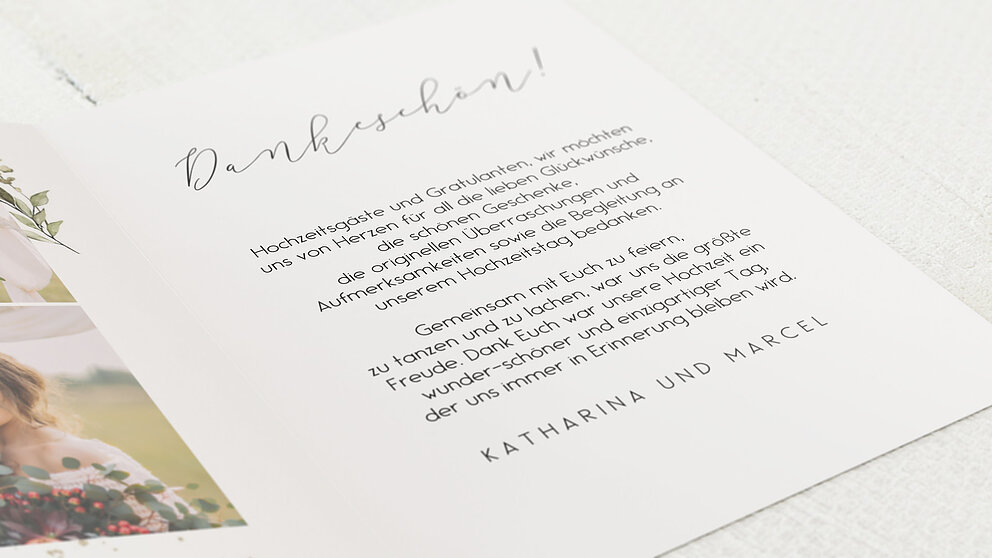 Dankeschön!
Hochzeitsgäste und Gratulanten, wir möchten
uns von Herzen für all die lieben Glückwünsche,
die schönen Geschenke,
die originellen Überraschungen und
Aufmerksamkeiten sowie die Begleitung an
unserem Hochzeitstag bedanken.
Gemeinsam mit Euch zu feiern,
zu tanzen und zu lachen, war uns die größte
Freude. Dank Euch war unsere Hochzeit ein
wunder-schöner und einzigartiger Tag,
der uns immer in Erinnerung bleiben wird.
KATHARINA UND MARCEL